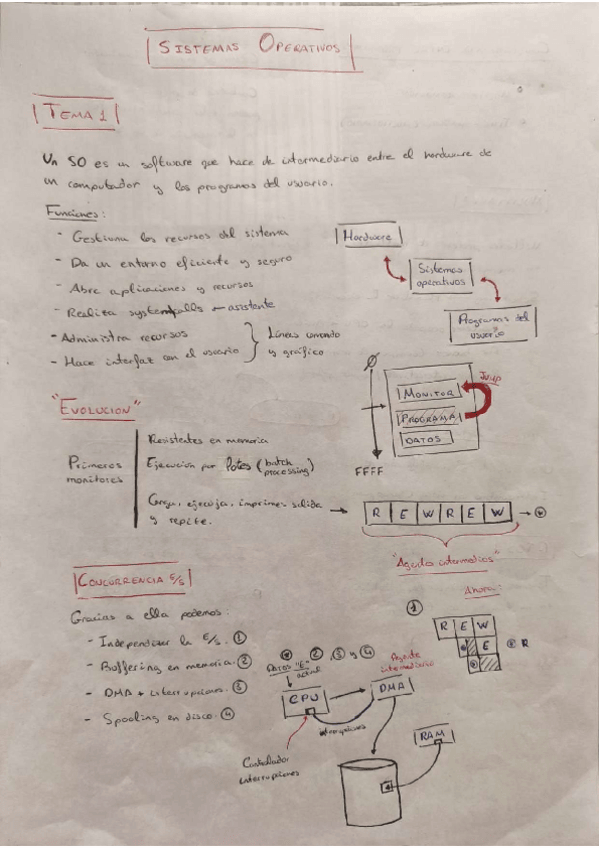 SISTEMAS OPERATIVOS
TEMA 1
Un SO es un software que hace de intermediario entre el hardware de
un computador y los programas del usuario.
Funciones:
- Gestiona los recursos del sistema
- Da un entorno eficiente y seguro
- Abre aplicaciones y recursos
- Realiza system calls ← asistente
- Administra recursos
- Hace interfaz con el usuario
Líneas comando
y gráfico
Hardware
Sistemas
operativos
Programas del
usuario
"EVOLUCION"
Primeros
monitores
Residentes en memoria
Ejecucion por lotes (batch
processing)
Carga, ejecuta, imprime salida
y repite.
Ø
MONITOR
PROGRAMA
DATOS
Jump
FFFF
R E W R E W
"Agente intermedios"
CONCURRENCIA E/S
Gracias a ella podemos:
- Independizar la E/S. 1
- Buffering en memoria. 2
- DMA + interrupciones. 3
- Spooling en disco. 4
Ahora:
1
R E W
E
R
2, 3 y 4
Datos "E"
actual
Agente
intermediario
CPU
DMA
interrupciones
Controlador
interrupciones
RAM